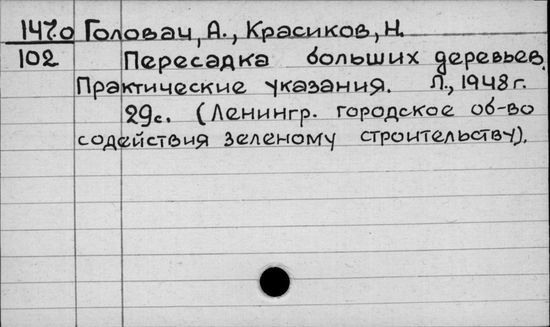 1470 Головач, А., Красиков, Н.
102 Пересадка больших деревьев.
Практические указания. Л., 1948 г.
29с. (Ленингр. городское об-во
содействия зеленому строительству).